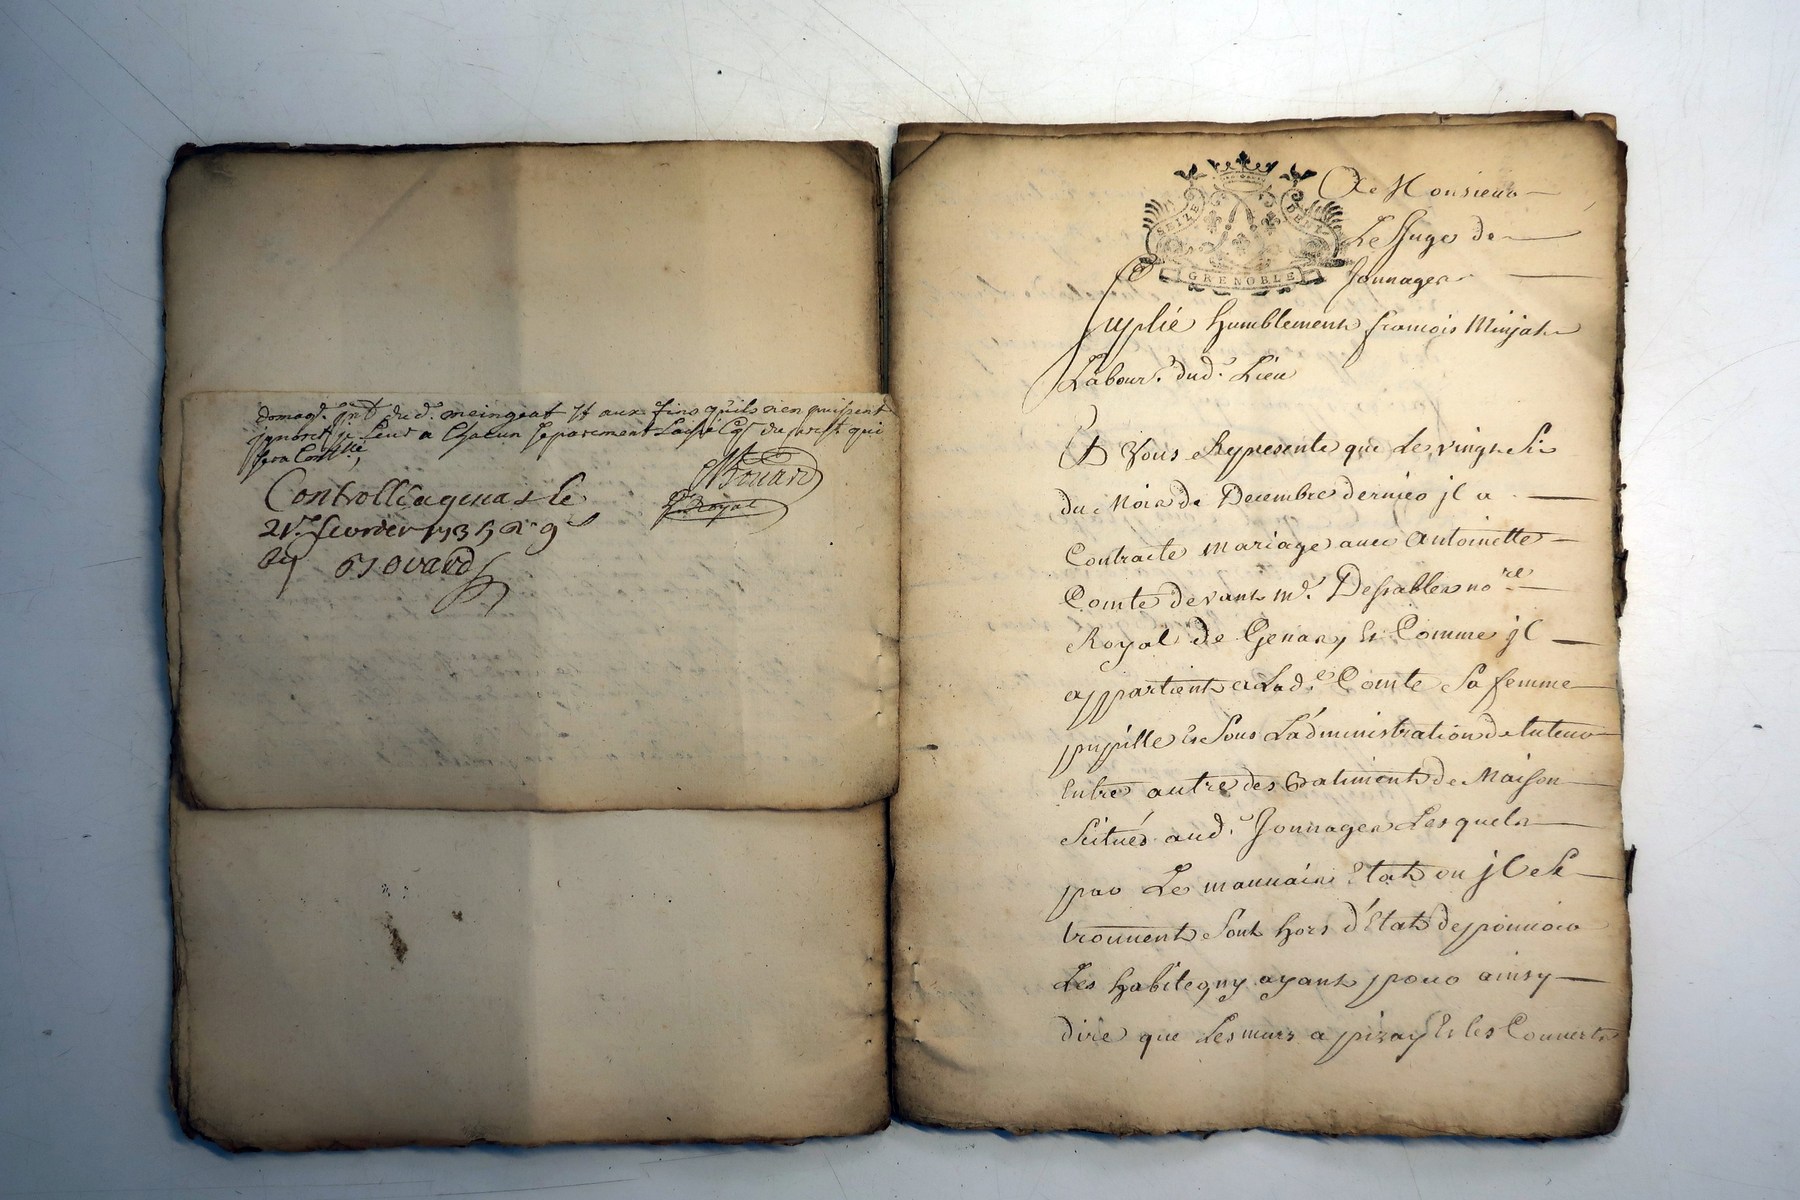 domag. jnt du d. meingeat Et aux fins qu'ils n'en puissent
jgnorer je leur a Chacun separement Laissé
sera Contllé
Bouard
Royal
Controllé a genas le
21e fevrier 1735 Rr 9s
Bovard
SEIZE DEN.
GRENOBLE
A Monsieur
Le Juge de
Jonnages
Suplie humblement francois Minjat
Labour.r dud. Lieu
Et Vous Represente que le vingt Six
du Mois de Decembre dernier jl a
Contracte mariage avec Antoinette
Comte devant me. Dessables nore
Royal de Genas, Et Comme jl
appartient a Lad.e Comte Sa femme
pupille Et Sous L'administration de tuteur
Entre autre des Batiments de Maison
Scitués aud. Jonnages Lesquels
par Le mauvais Etat ou jl Se
trouvent Sont hors d'Etat de pouvoir
Les habite ny ayant pour ainsy
dire que Les murs a pizay Et les Couverts